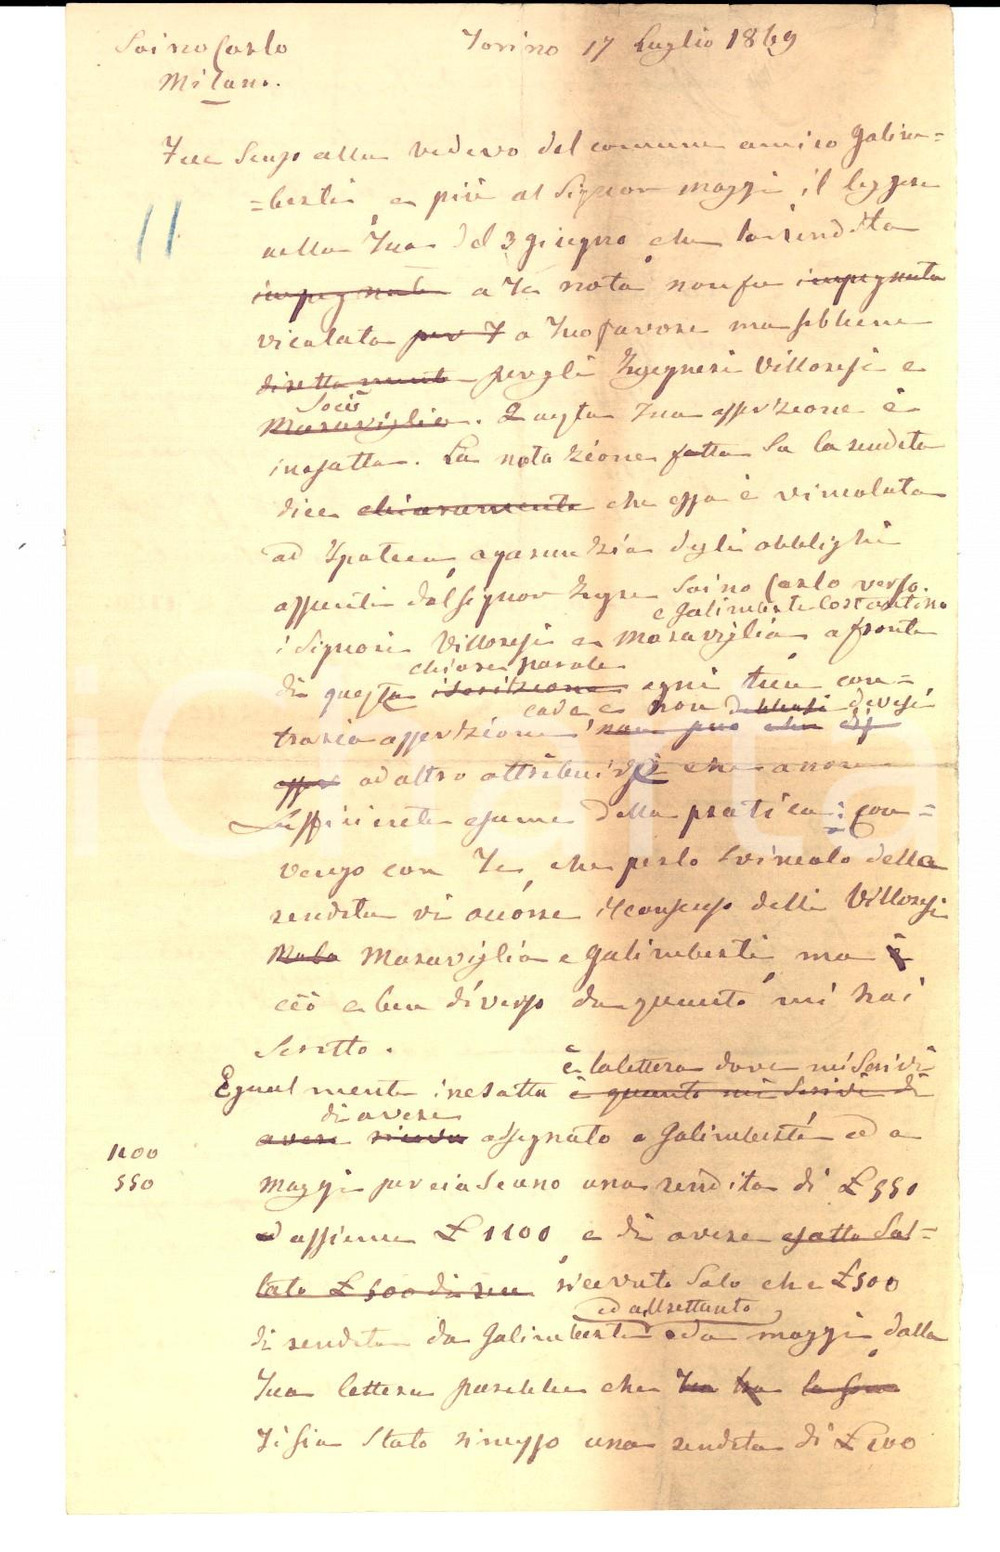 Soino Carlo
Milano.
Torino 17 Luglio 1869
Fece senso alla vedova del comune amico Galim=
=berti e più al Signor Maggi il leggere
nella Tua del 3 giugno che la rendita
impegnata a Te nota non fu impegnata
vincolata per T a Tuo favore ma sebbene
direttamente per gli Ingegneri Villoresi e
Socii
Maraviglia. Questa Tua asserzione è
inesatta. La notazione fatta su la rendita
dice chiaramente che essa è vincolata
ad Ipoteca, a garanzia degli obblighi
assunti dal Signor Ingre Soino Carlo verso
e Galimberti Costantino
i Signori Villoresi e Maraviglia a fronte
chiare parole
di questa iscrizione ogni tua con=
cade e non devesi
traria asserzione non può che
ad altro attribuirsi che a non
sufficiente esame della pratica: con=
vengo con Te, che per lo svincolo della
rendita vi occorre il consenso delli Villoresi
Maraviglia e Galimberti ma è
ciò è ben diverso da quanto mi hai
scritto.
è la lettera dove mi scrivi
Egualmente inesatta è quanto mi scrivi di
di avere
avere assegnato a Galimberti ed a
1100
550
Maggi per ciascuno una rendita di £ 550
ed assieme £ 1100, e di avere esatto sol=
tato £ 500 di ricevuto solo che £ 500
ed altrettanto
di rendita da Galimberti e da Maggi dalla
Tua lettera parebbe che
Ti sia stato rimesso una rendita di £ 100